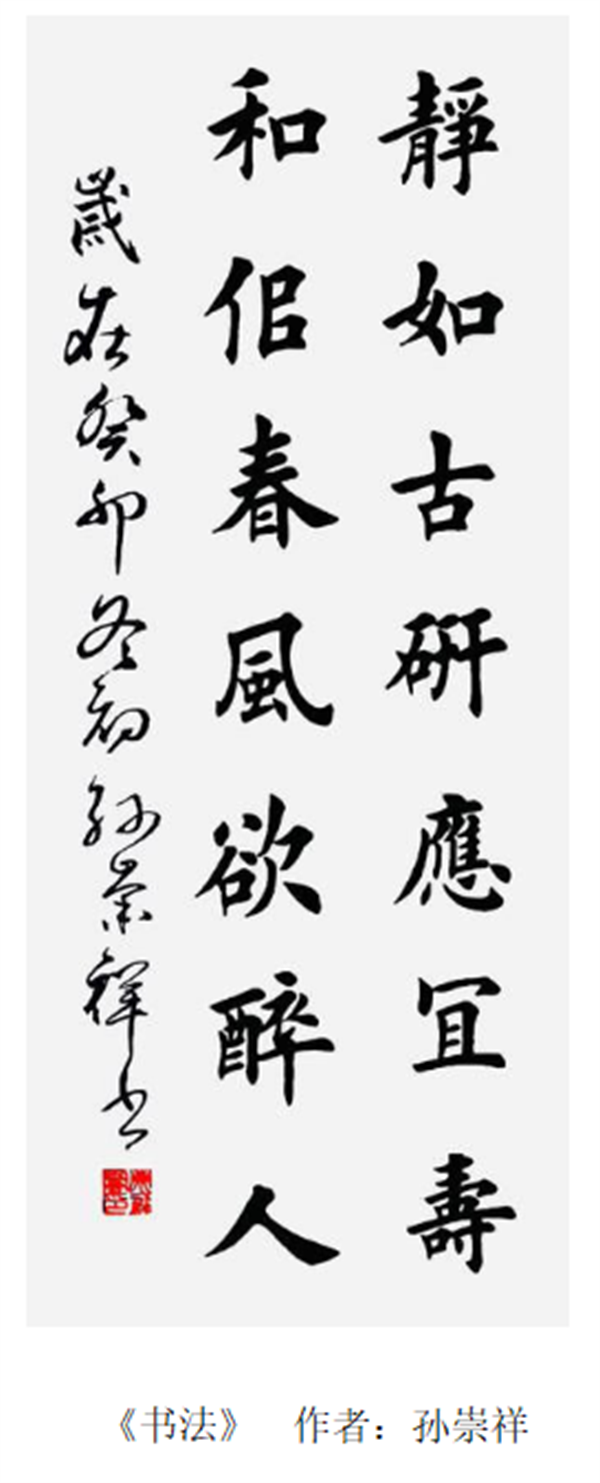 靜如古硏應冝壽
和佀春風欲醉人
歲在癸卯冬初孙崇祥书
《书法》 作者：孙崇祥